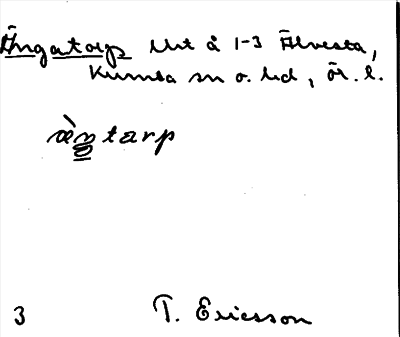 Ängatorp Mt å 1-3 Älvesta,
Kumla sn o. hd, ör. l.
ängtarp
3 T. Ericsson